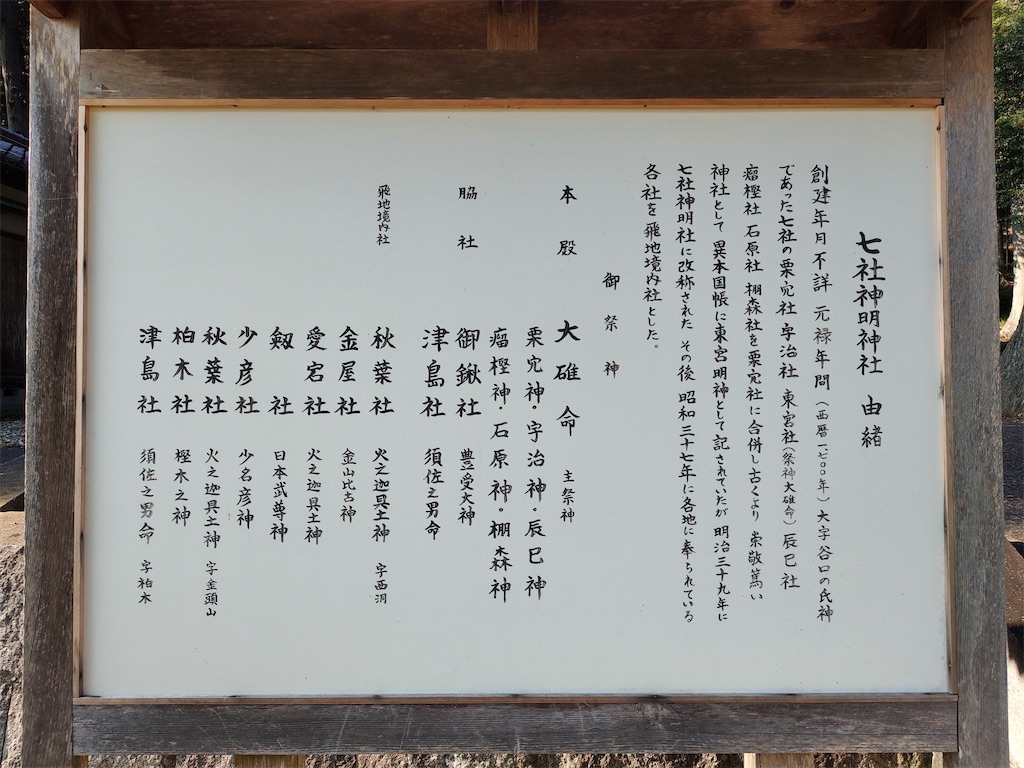 七社神明神社 由緒
創建年月不詳 元禄年間(西暦一七〇〇年)大字谷口の氏神
であった七社の栗宄社 宇治社 東宮社(祭神大碓命)辰巳社
瘤樫社 石原社 棚森社を栗宄社に合併し古くより 崇敬篤い
神社として 異本国帳に東宮明神として記されていたが 明治三十九年に
七社神明社に改称された その後 昭和三十七年に各地に奉られている
各社を飛地境内社とした。
御祭神
本殿 大碓命 主祭神
栗宄神・宇治神・辰巳神
瘤樫神・石原神・棚森神
脇社 御鍬社 豊受大神
津島社 須佐之男命
飛地境内社 秋葉社 火之迦具土神 字西洞
金屋社 金山比古神
愛宕社 火之迦具土神
剱社 日本武尊神
少彦社 少名彦神
秋葉社 火之迦具土神 字金頭山
柏木社 樫木之神
津島社 須佐之男命 字柏木